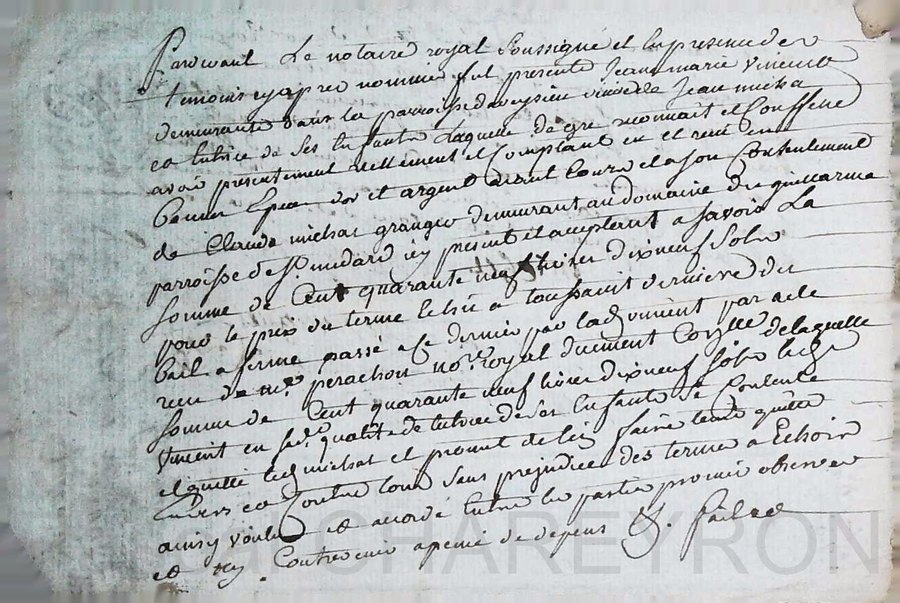 Pardevant Le notaire royal soussigné et En presence des
temoins cy apres nommés fut presente Jeanmarie vincent
demeurante dans la parroisse daveysieu veuve de Jean michas
et tutrice de ses Enfants Laquelle de gré reconnait et Confesse
avoir presentement réellement et Comptant eu et receu en
bonnes Especes dor et argent ayant Cours et a son Contentement
de Claude michas granger demeurant au domaine du guillarme
parroisse de st medard icy present et acceptant a savoir La
somme de Cent quarante neuf livres dixneuf sols
pour le prix du terme Echu a toussaint derniere du
bail a ferme passé a Ce dernier par lad. vincent par acte
receu de me. perachon nore. royal duement Corolle de laquelle
somme de Cent quarante neuf livres dixneuf sols lad.
vincent en sade. qualité de tutrice de ses Enfants se Contente
et quitte led. michas et promet de l'en faire tenir quitte
Envers et Contre tous sans prejudice des termes a Echoir
ainsy voulu et accordé Entre les parties promis observer
et ny Contrevenir a peine de depens &. fait et
CHAREYRON